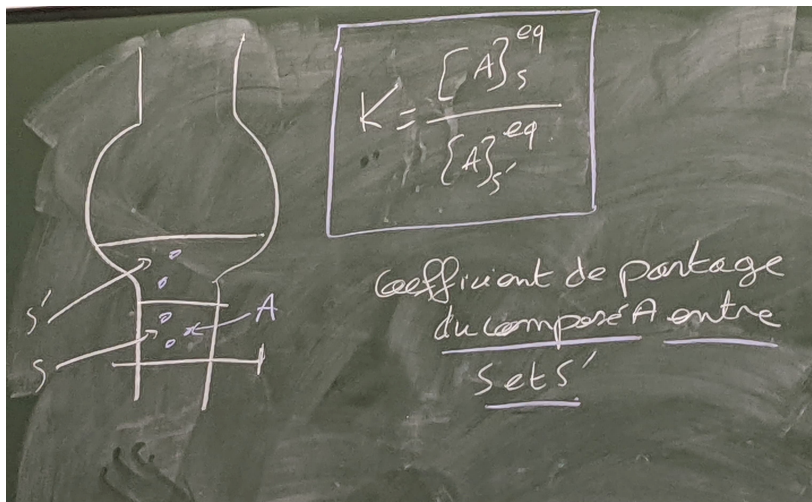 K = [A]s^eq / [A]s'^eq
s'
A
s
Coefficient de partage
du composé A entre
s et s'